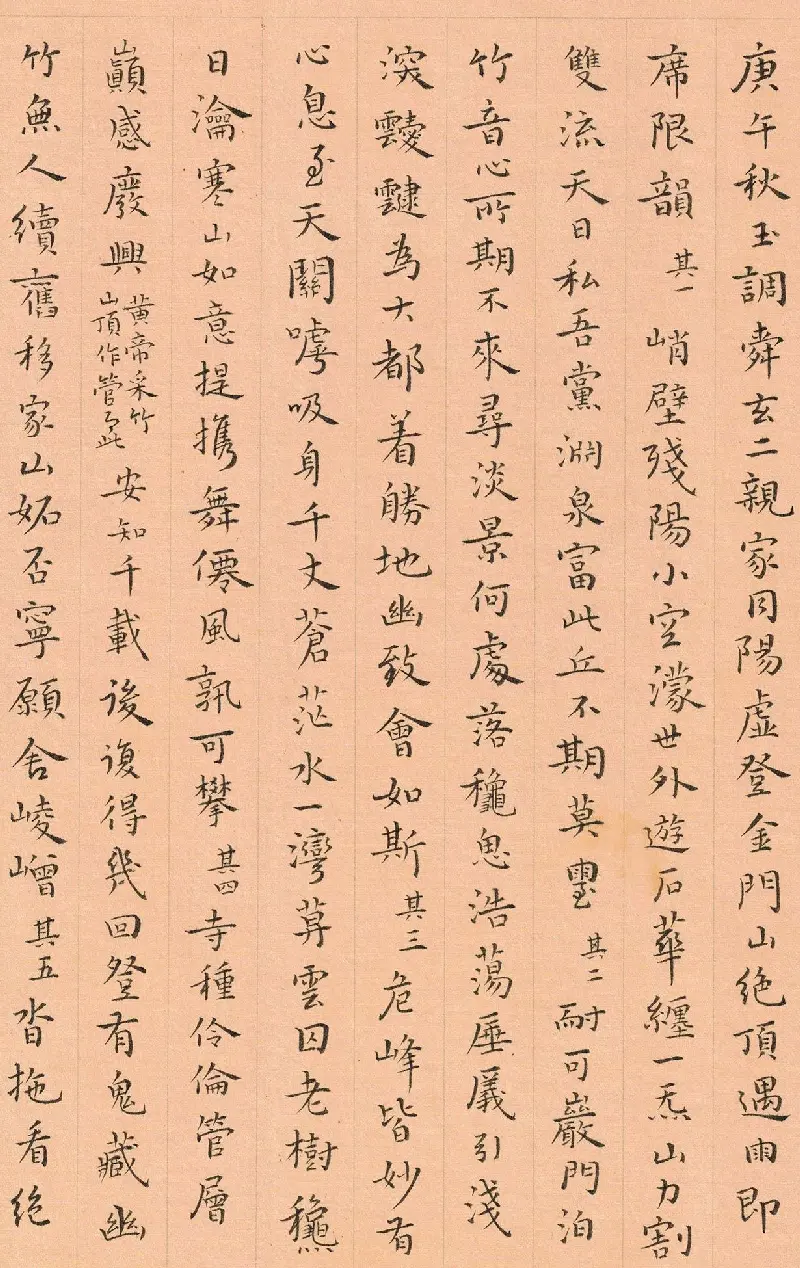 庚午秋玉調舜玄二親家同陽虛登金門山絶頂遇雨即
席限韻 其一 峭壁殘陽小空濛世外遊石華纏一炁山力割
雙流天日私吾黨淵泉富此丘不期莫 其二 耐可巖門泊
竹音心所期不來尋淡景何處落龝思浩蕩垂展引淺
深靉靆為大都着勝地幽致會如斯 其三 危峰皆妙有
心息至天關嘑吸身千丈蒼茫水一灣莽雲囚老樹龝
日瀹寒山如意提攜舞僊風孰可攀 其四 寺種伶倫管層
巔感廢興 黄帝采竹山頂作管 安知千載後復得幾回登有鬼藏幽
竹無人續舊移家山妬否寧願舍崚嶒 其五 沓拖看絶